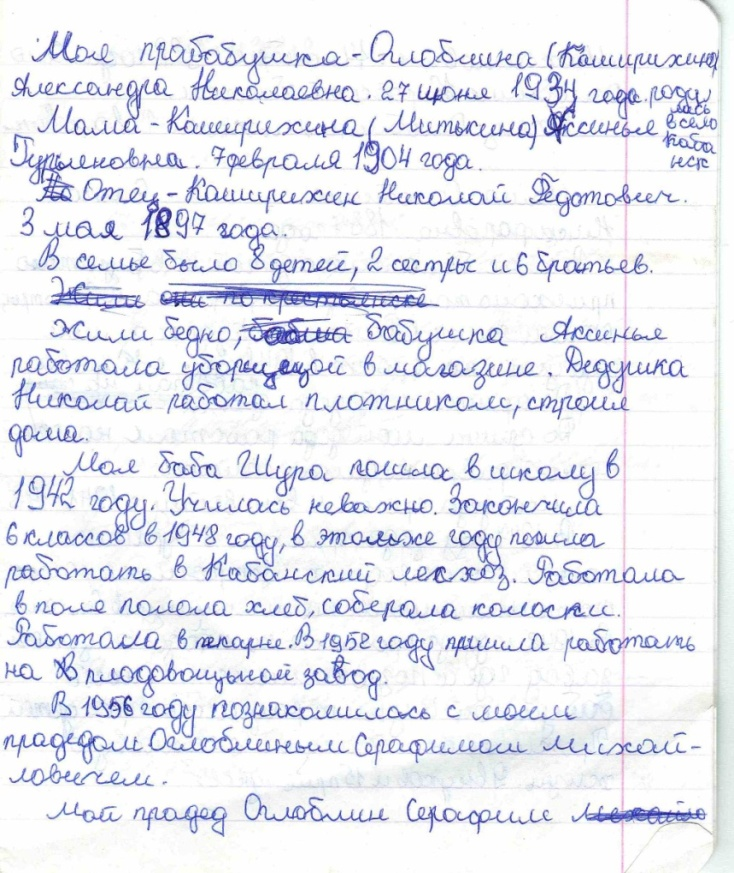 Моя прабабушка - Оглоблина (Каширихина)
Алессандра Николаевна. 27 июня 1934 года роди
лась
в село
Каба
нск
Мама - Каширихина (Митькина) Аксинья
Гурьеновна. 7 февраля 1904 года.
Отец - Каширихин Николай Федотович.
3 мая 1897 года.
В семье было 8 детей, 2 сестры и 6 братьев.
Жили они по крестьянске
Жили бедно, бабушка Аксинья
работала уборщицой в магазине. Дедушка
Николай работал плотником, строил
дома.
Моя баба Шура пошла в школу в
1942 году. Училась неважно. Закончила
6 классов в 1948 году, в этом же году пошла
работать в Кабанский лесхоз. Работала
в поле полола хлеб, соберала колоски.
Работала в пекарне. В 1952 году пришла работать
на плодовощьной завод.
В 1956 году познакомилась с моим
прадедом Оглоблиным Серафимом Михай-
ловичем.
Мой прадед Оглоблин Серафим Михайло